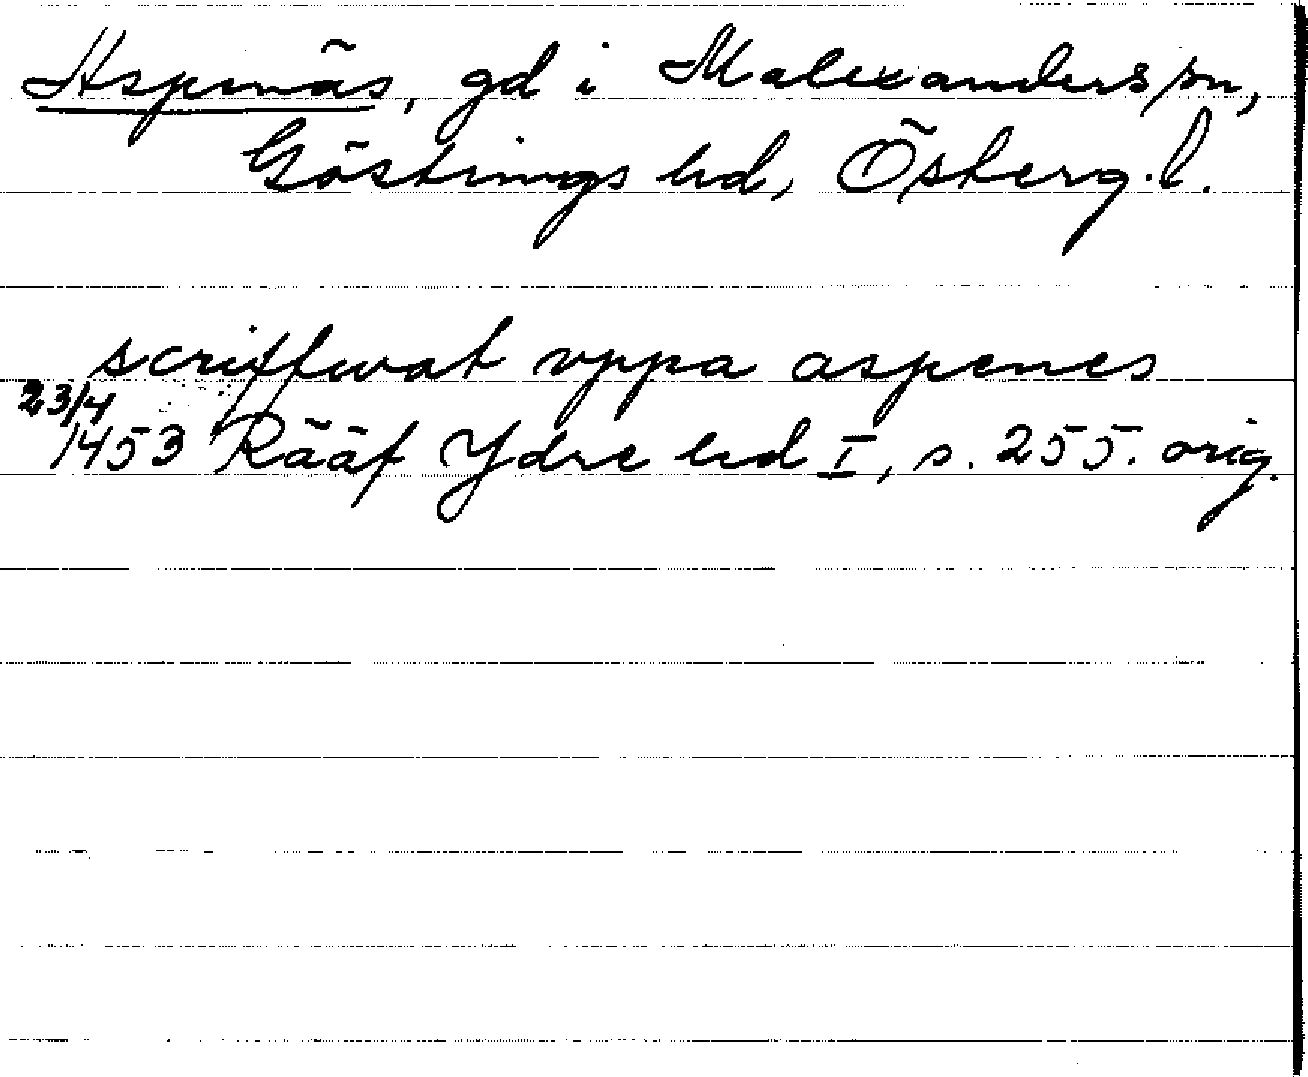 Aspenäs, gd i Malexanders sn,
Göstrings hd, Österg. l.
scriffwat vppa aspenes
23/4
1453 Rääf Ydre hd I, s. 255. orig.